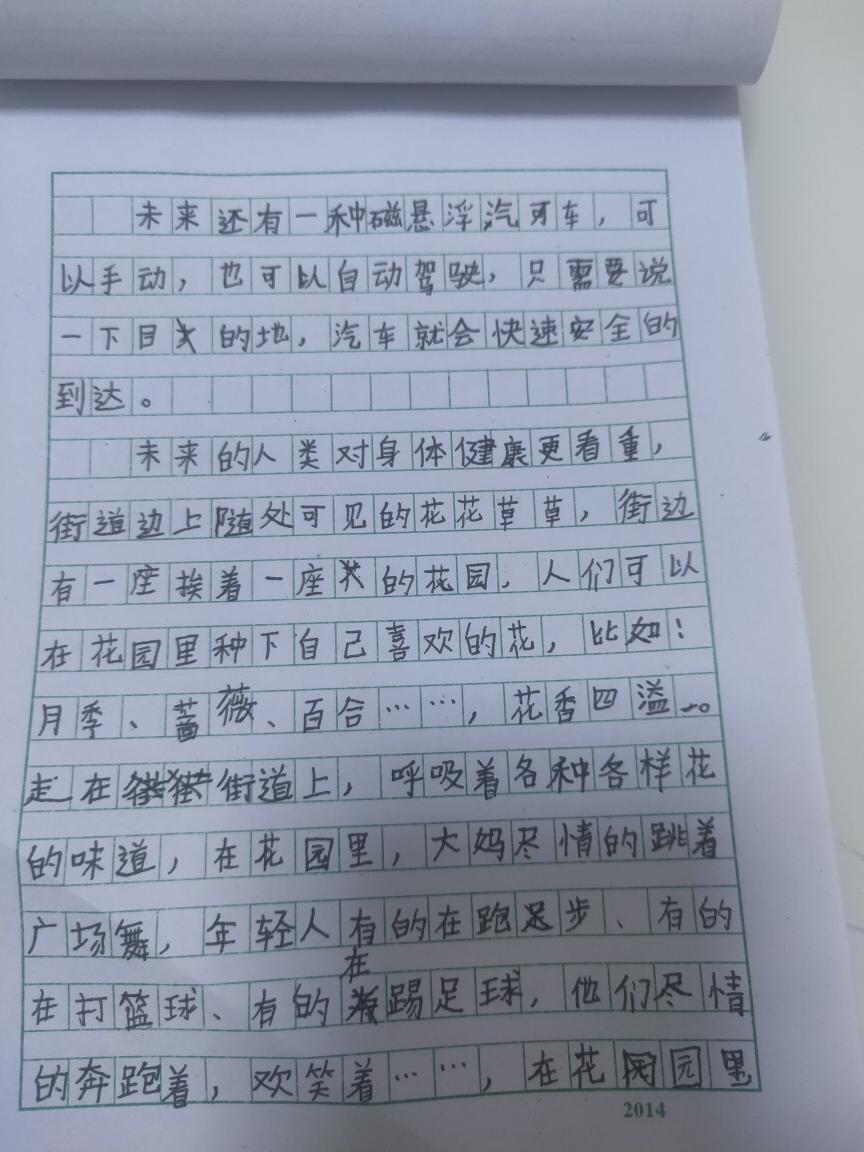 未来还有一种磁悬浮汽车，可
以手动，也可以自动驾驶，只需要说
一下目的地，汽车就会快速安全的
到达。
未来的人类对身体健康更看重，
街道边上随处可见的花花草草，街边
有一座挨着一座的花园，人们可以
在花园里种下自己喜欢的花，比如：
月季、蔷薇、百合……，花香四溢。
走在街道上，呼吸着各种各样花
的味道，在花园里，大妈尽情的跳着
广场舞，年轻人有的在跑步、有的
在打篮球、有的在踢足球，他们尽情
的奔跑着，欢笑着……，在花园里
2014